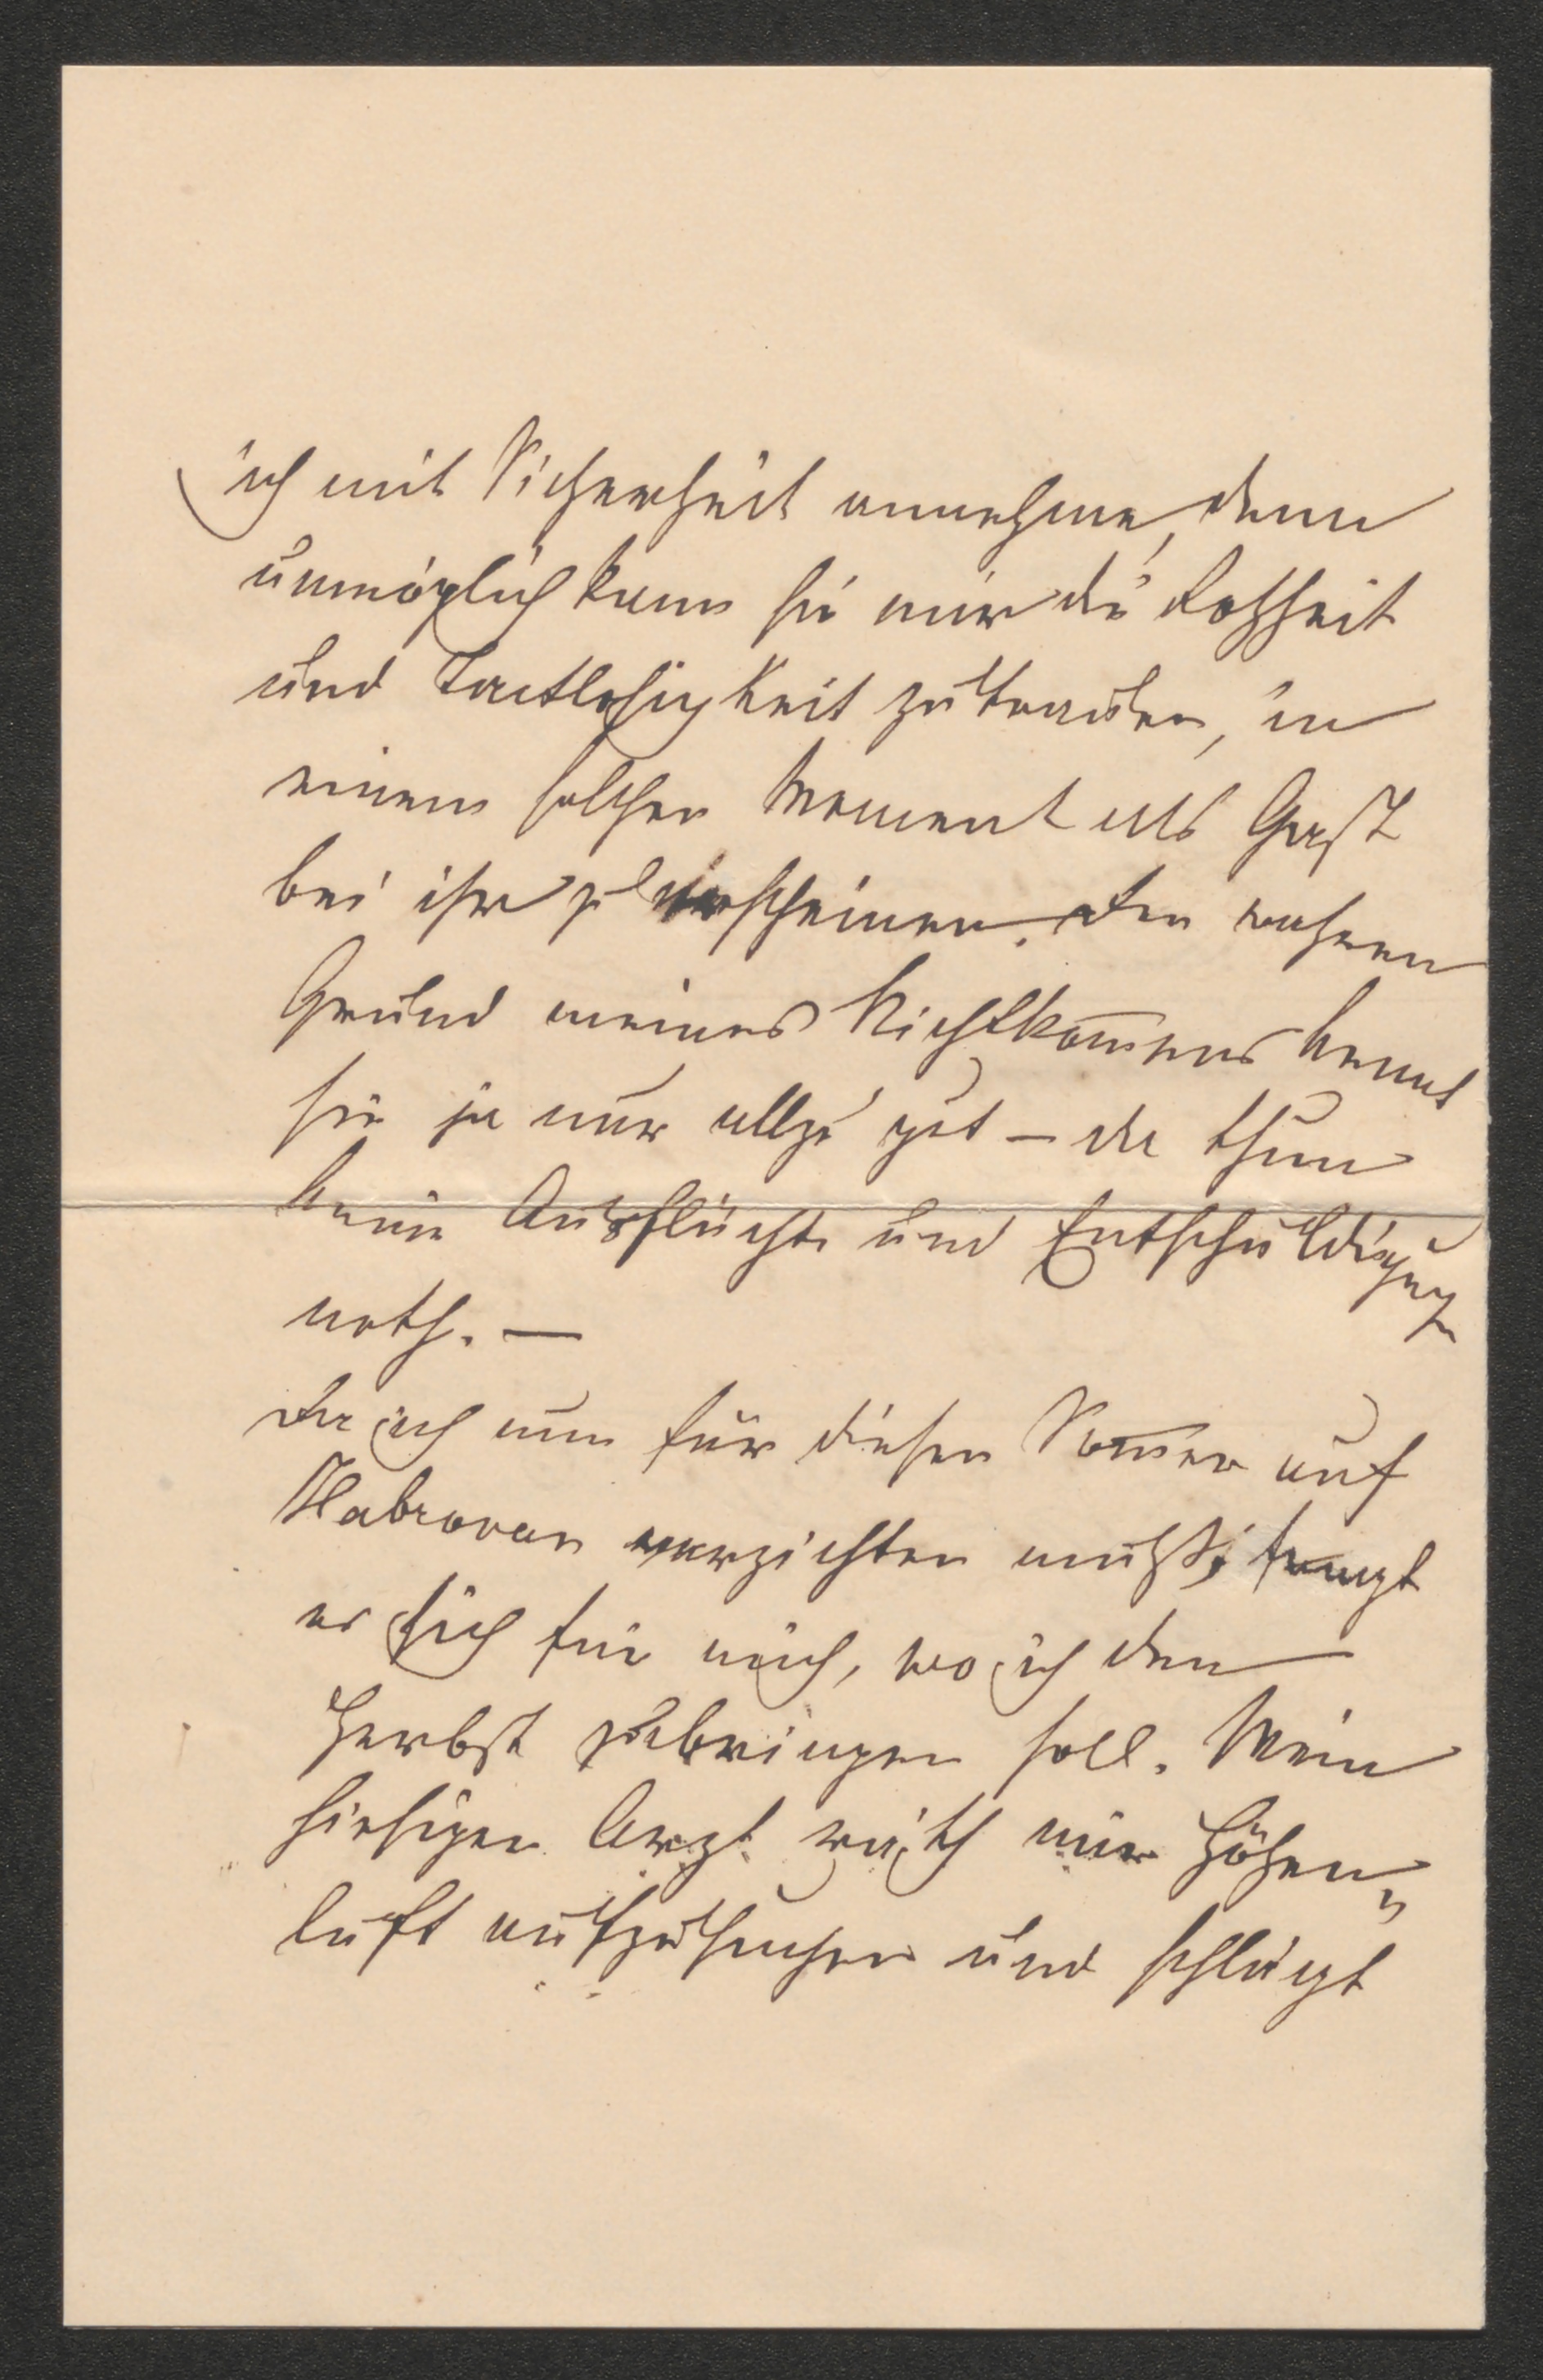 ich mit Sicherheit annehme, denn
unmöglich kann sie mir die Rohheit
und Tactlosigkeit zutrauen, in
einem solchen Moment als Gast
bei ihr zu erscheinen. Den wahren
Grund meines Nichtkom̅ens kennt
sie ja nur allzu gut – da thun
keine Ausflüchte und Entschuldigungen
noth. –
Da ich nun für diesen Som̅er auf
Habrovan verzichten mußte, fragt
es sich für mich, wo ich den
Herbst zubringen soll. Mein
hiesiger Arzt räth mir Höhen„
luft aufzusuchen und schlägt